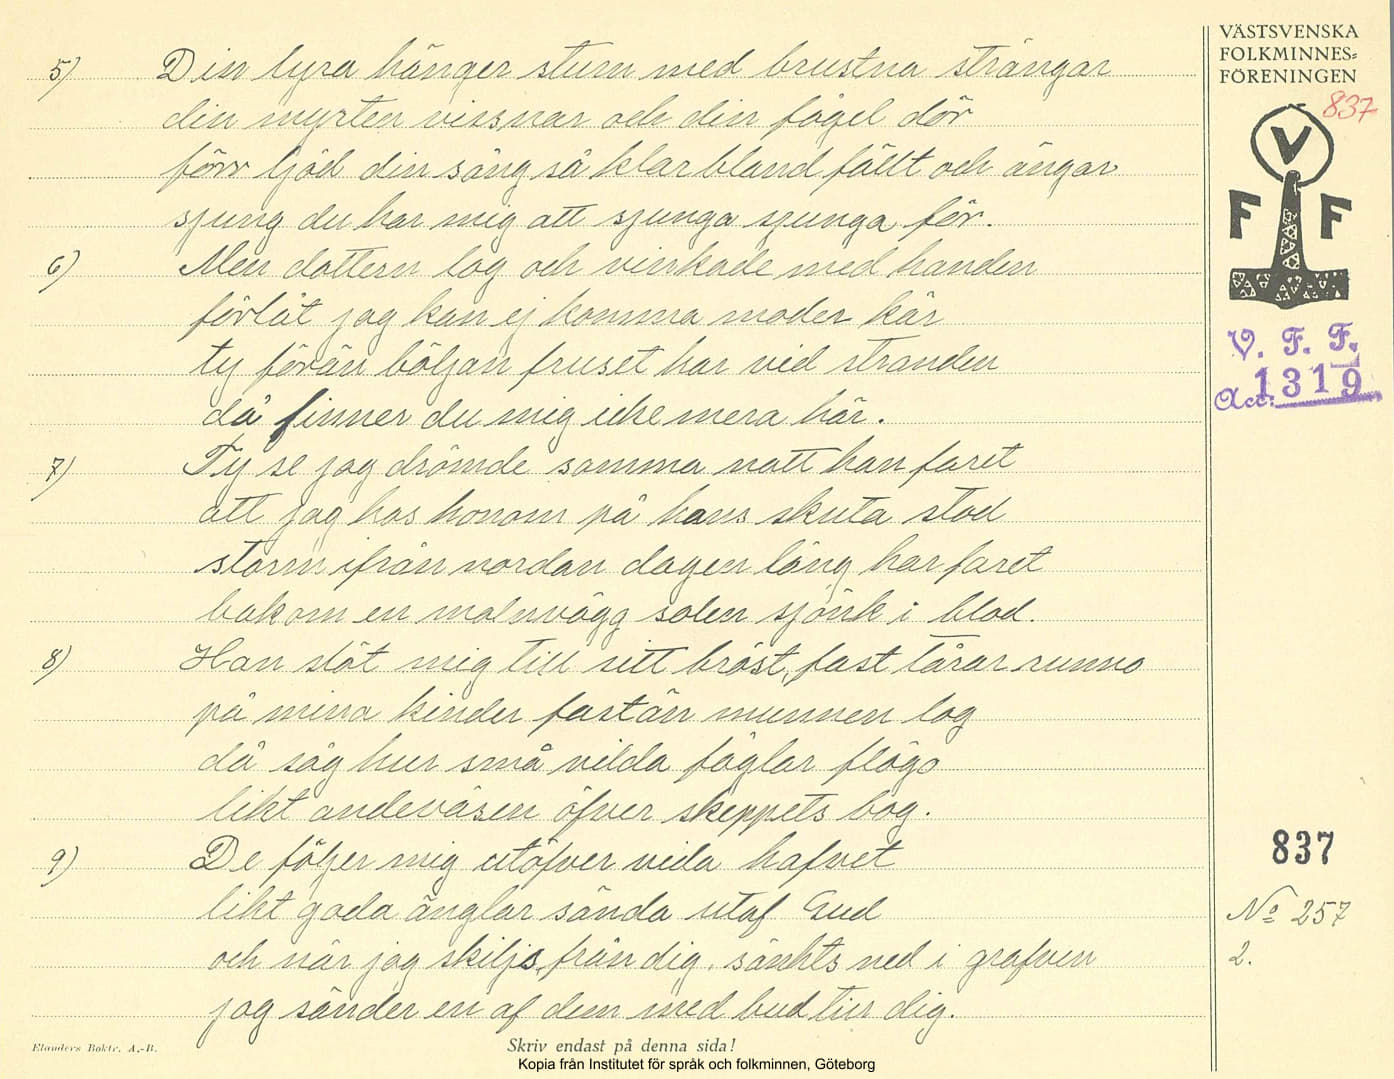 VÄSTSVENSKA
FOLKMINNES=
FÖRENINGEN
837
V
F F
V. F. F.
Acc. 1319
5) Din lyra hänger stum med brustna strängar
din myrten vissnar och din fågel dör
förr ljöd din sång så klar bland fällt och ängar
sjung du har mig att sjunga sjunga för.
6) Men dottern log och vinkade med handen
förlåt jag kan ej komma moder kär
ty förän böljan fruset har vid stranden
då finner du mig icke mera här.
7) Ty se jag drömde samma natt han faret
att jag hos honom på hans skuta stod
storm ifrån nordan dagen lång har faret
bakom en molnvägg solen sjönk i blod.
8) Han slöt mig till sitt bröst, fast tårar runno
på mina kinder fastän munnen log
då såg hur små vilda fåglar flögo
likt andeväsen öfver skeppets bog.
9) De följer mig utöfver vida hafvet
likt goda änglar sända utaf Gud
och när jag skiljs från dig, sänkts ned i grafven
jag sänder en af dem med bud till dig.
837
No 257
2.
Elanders Boktr. A.-B.
Skriv endast på denna sida!
Kopia från Institutet för språk och folkminnen, Göteborg